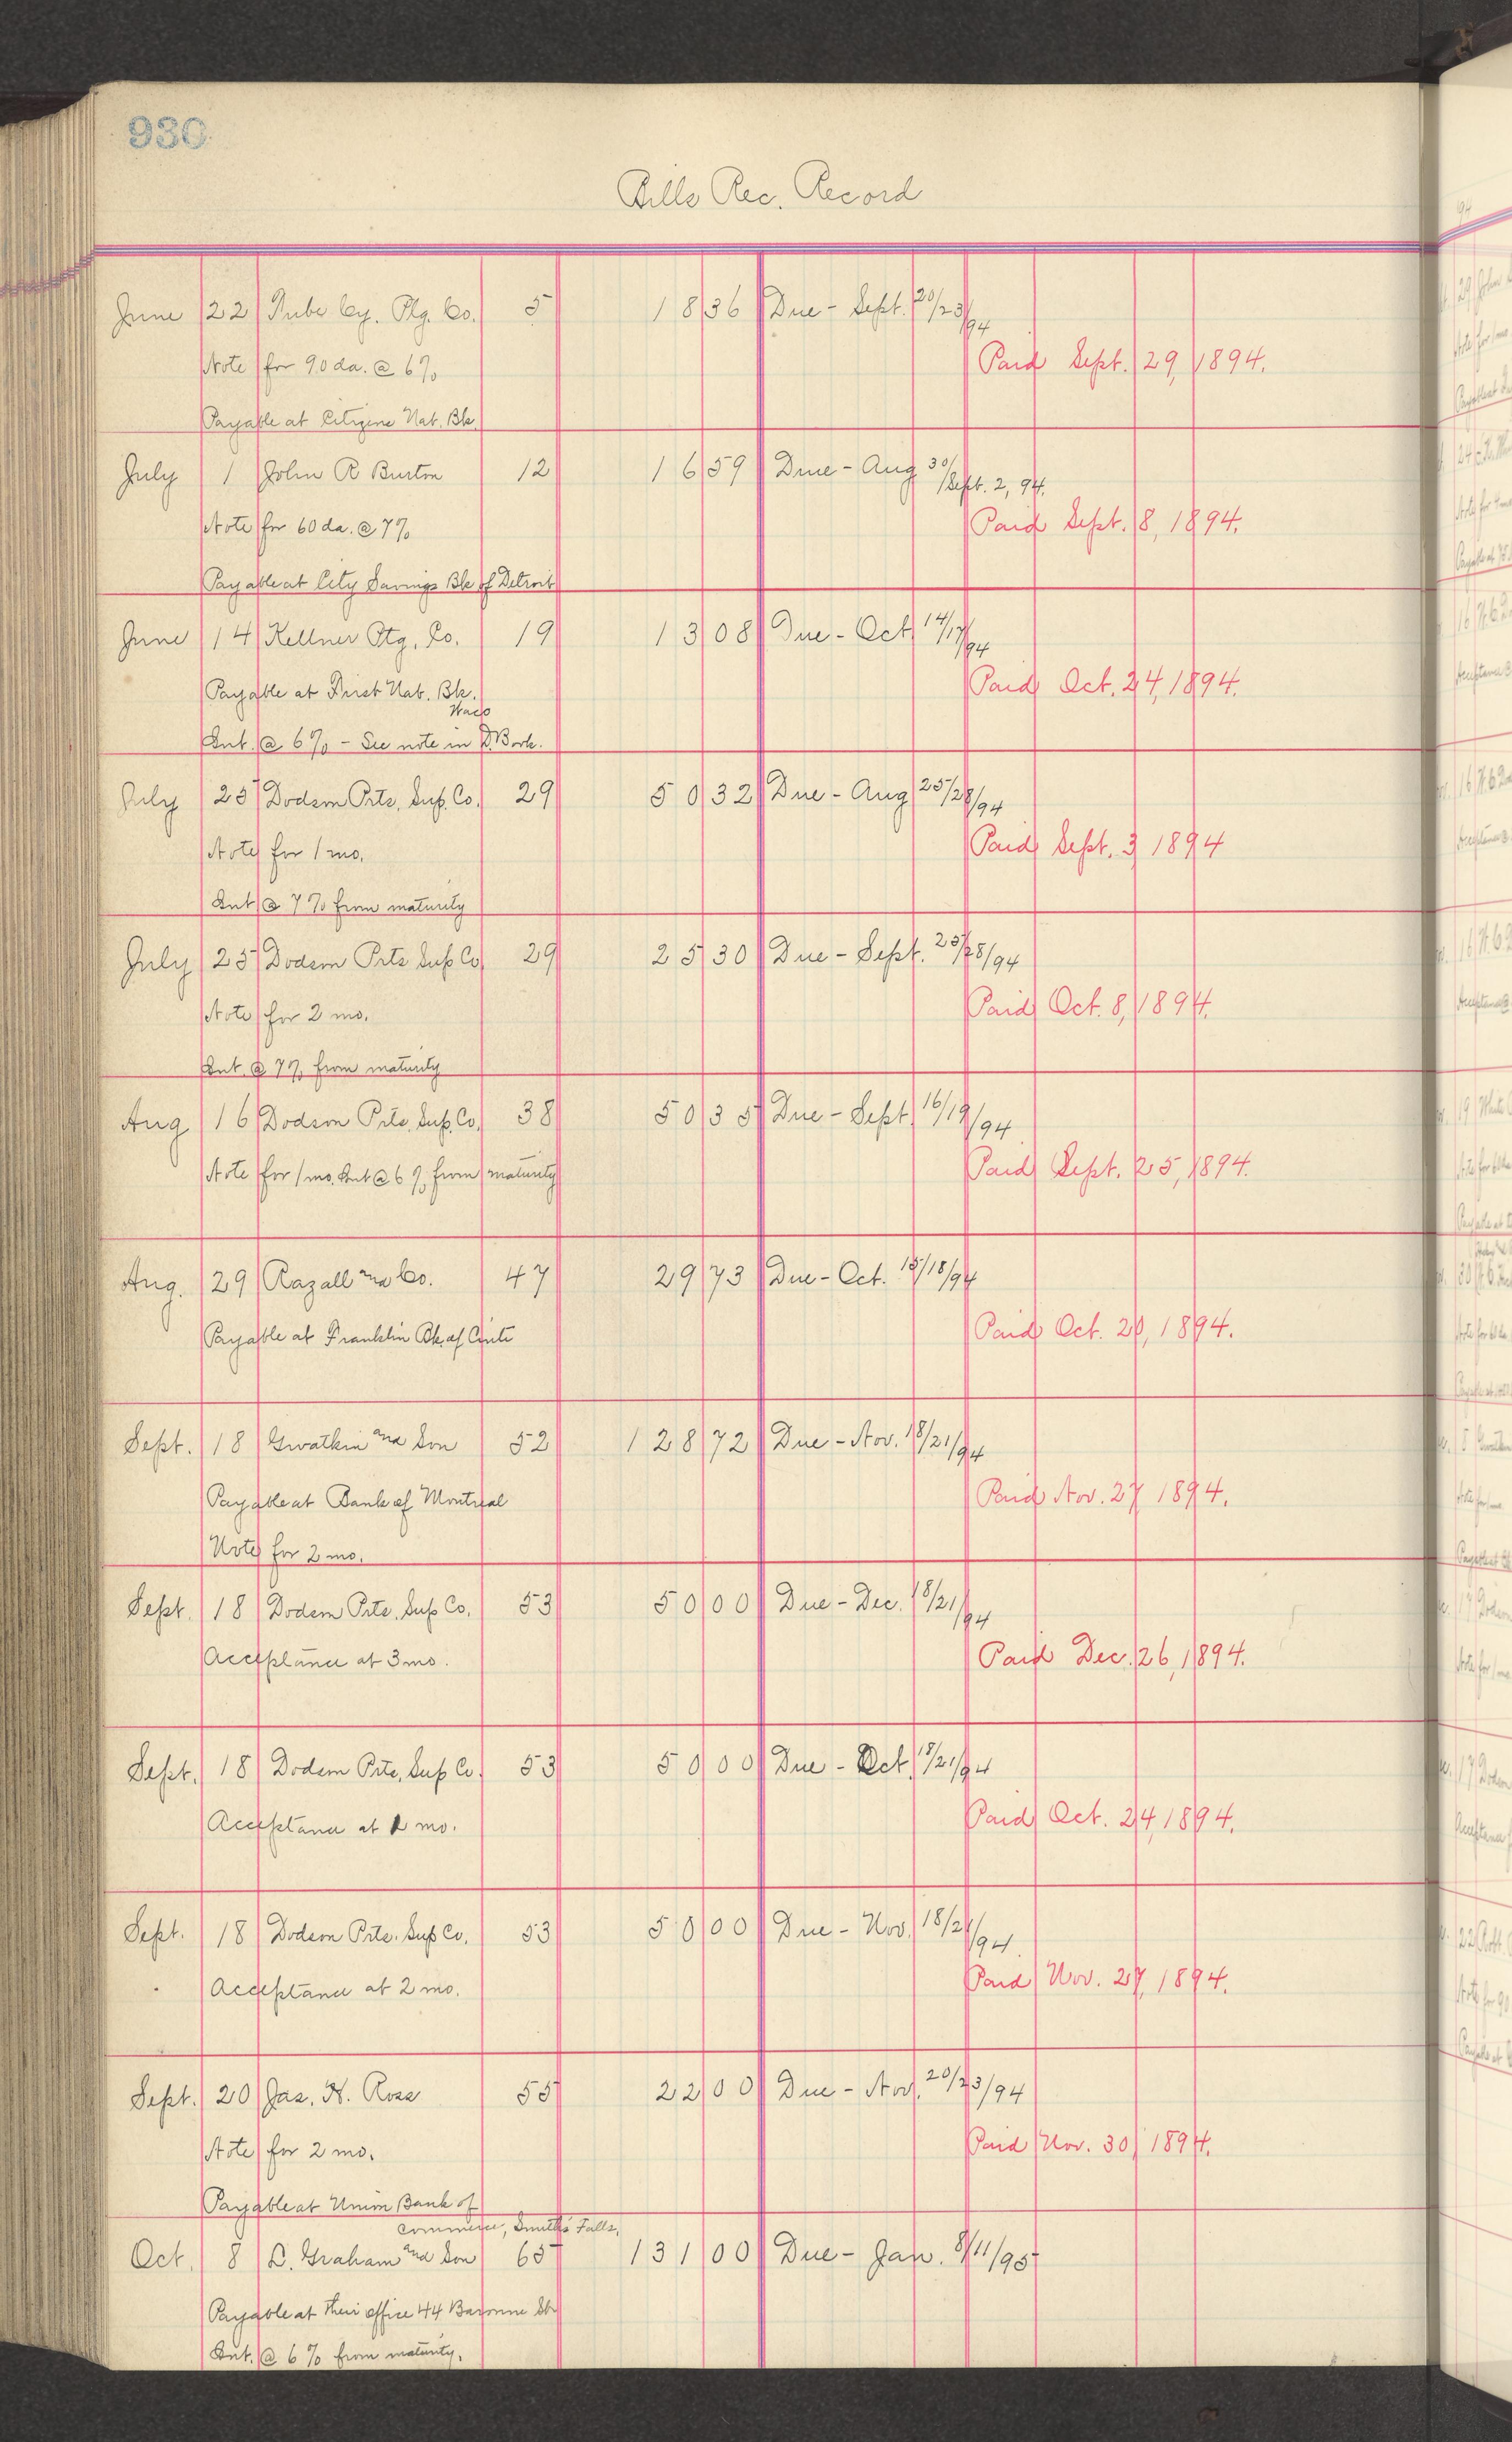 930
Bills Rec. Record
June 22 Tube Cy. Plg. Co. 5 18 36 Due - Sept. 20/23/94
Note for 90 da. @ 6%
Paid Sept. 29, 1894.
Payable at Citizens Nat. Bk.
July 1 John R Burton 12 16 59 Due - Aug 30/Sept. 2, 94.
Note for 60 da. @ 7%
Paid Sept. 8, 1894.
Payable at City Savings Bk of Detroit
June 14 Kellner Ptg. Co. 19 13 08 Due - Oct 14/17/94
Payable at First Nat. Bk. Waco
Paid Oct. 24, 1894.
Int. @ 6% - See note in D. Book.
July 25 Dodson Prts. Sup. Co. 29 50 32 Due - Aug 25/28/94
Note for 1 mo.
Paid Sept. 3 1894
Int @ 7% from maturity
July 25 Dodson Prts Sup Co 29 25 30 Due - Sept. 25/28/94
Note for 2 mo.
Paid Oct. 8, 1894.
Int. @ 7% from maturity
Aug 16 Dodson Prts. Sup. Co. 38 50 35 Due - Sept. 16/19/94
Note for 1 mo. Int @ 6% from maturity
Paid Sept. 25, 1894.
Aug. 29 Razall and Co. 47 29 73 Due - Oct. 15/18/94
Payable at Franklin Bk. of Cinti
Paid Oct. 20, 1894.
Sept. 18 Gwatkin and Son 52 128 72 Due - Nov. 18/21/94
Payable at Bank of Montreal
Paid Nov. 27 1894.
Note for 2 mo.
Sept. 18 Dodson Prts. Sup Co. 53 50 00 Due - Dec. 18/21/94
Acceptance at 3 mo.
Paid Dec. 26, 1894.
Sept. 18 Dodson Prts. Sup Co. 53 50 00 Due - Oct. 18/21/94
Acceptance at 1 mo.
Paid Oct. 24, 1894.
Sept. 18 Dodson Prts. Sup Co. 53 50 00 Due - Nov. 18/21/94.
Acceptance at 2 mo.
Paid Nov. 27, 1894.
Sept. 20 Jas. H. Ross 55 22 00 Due - Nov. 20/23/94
Note for 2 mo.
Paid Nov. 30, 1894.
Payable at Union Bank of
Commerce, Smiths Falls,
Oct. 8 D. Graham and Son 65 131 00 Due - Jan. 8/11/95
Payable at their office 44 Baronne St.
Int. @ 6% from maturity.